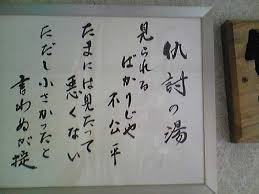 仇討の湯
見られる
ばかりじや
不公平
たまには見たって
悪くない
ただし小さかったと
言わぬが掟